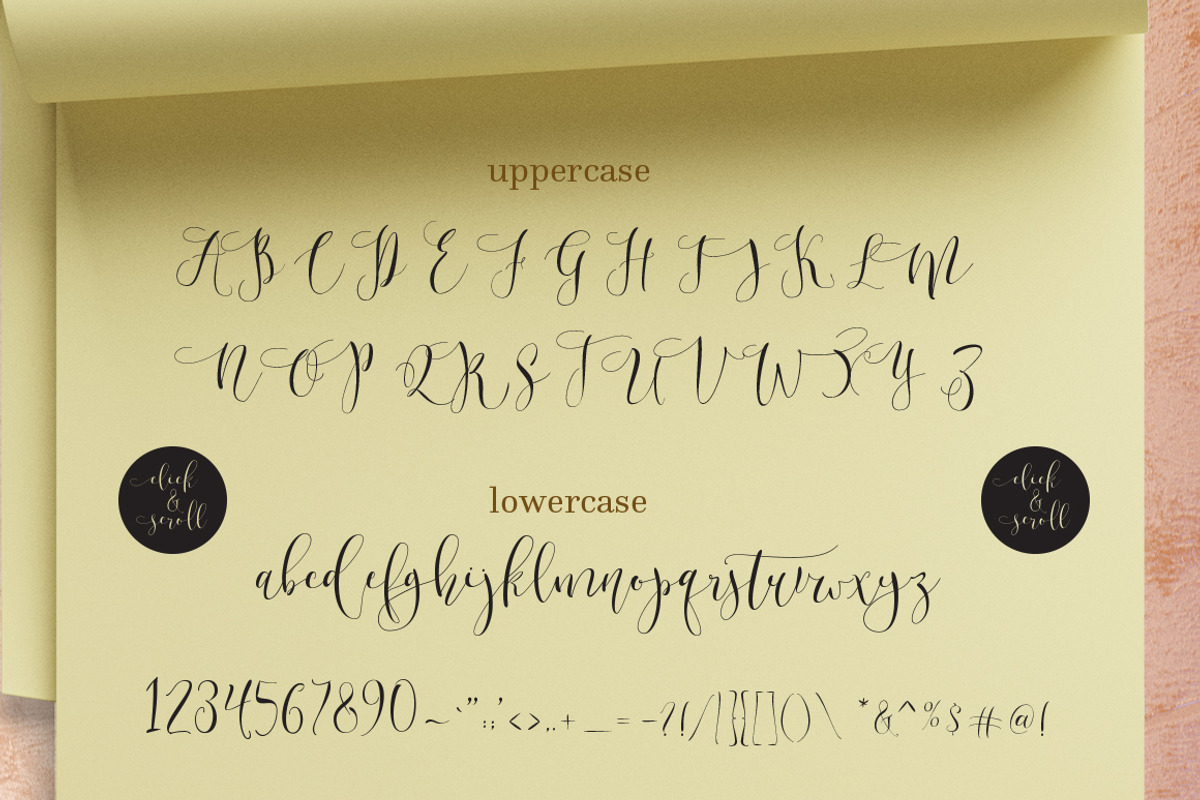 uppercase
A B C D E F G H I J K L M
N O P Q R S T U V W X Y Z
click
&
scroll
click
&
scroll
lowercase
abcdefghijklmnopqrstuvwxyz
1234567890~`”:;’<>,.+_=-?!/|}{][()\*&^%$#@!